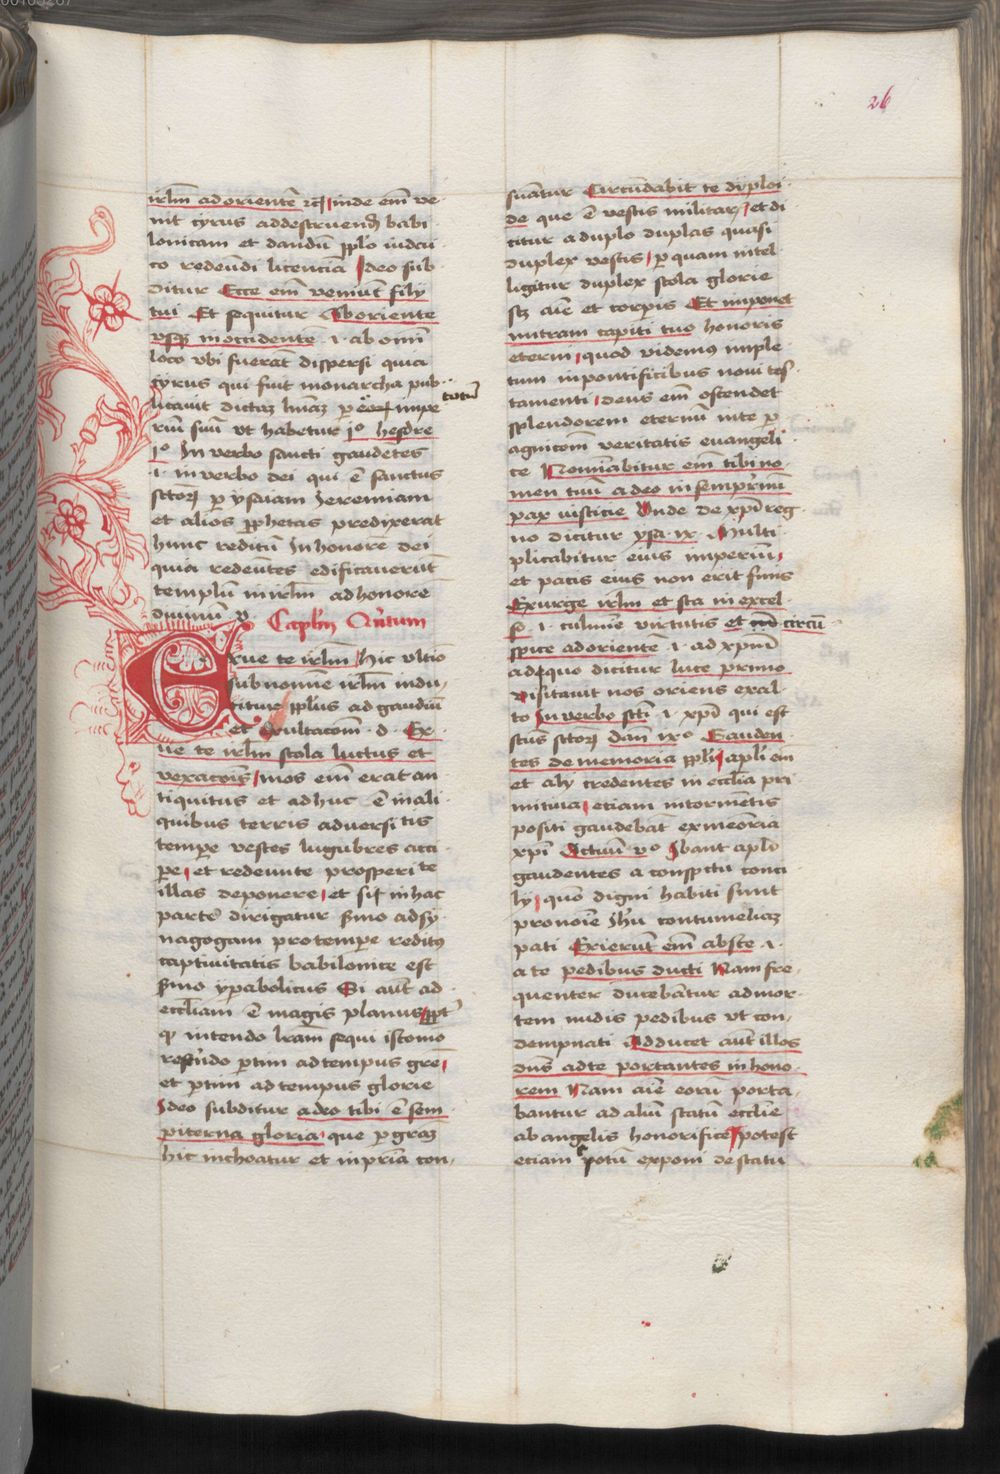 26
irlm̄ ad orientē ⁊c̄ inde em̄ ve
nit cyrus ad destruend̄ babi
lonicam et dandū pplō iudai
co redeundi licenciā Ideo sub
ditur Ecce em̄ veniūt filij
tui Et sequitur Ab oriente
usqꝫ in occidentē .i. ab omī
loco vbi fuerāt dispersi quia
cyrus qui fuit monarcha pub
licavit dictas lrās p eōꝝ impe totū
riū suū vt habetur jº hesdre
jº In verbo sancti gaudētes
.i. in verbo dei qui ē sanctus
sctōꝝ p ysaiam Jeremiam
et alios pphetas predixerat
hunc reditū In honorē dei
quia redeūtes edificaverūt
templū in irlm̄ ad honorē
divinū v Caplm̄ Qūintum
Exue te irlm̄ Hic vltīo
sub nomīe irlm̄ indu
titur pplūs ad gaudiū
et exultacōm̄ .d. Ex
ue te irlm̄ stola luctus et
vexacōis mos em̄ erat an
tiquitus et adhuc ē in ali
quibus terris adversitatis
tempe vestes lugubres acci
pe et redeunte prosperitate
illas deponere et sic in hac
parte dirigatur sm̄o ad sy
nagogam pro tempe reditus
captivitatis babilonice est
sm̄o yperabolicus Si aūt ad
eccliam ē magis planus ppt
qꝫ intendo lram̄ sequi istomo
referēdo ptim ad tempus grē
et ptim ad tempus glorie
Ideo subditur a deo tibi ē sem
piterna gloria que p graꝫ
hic inchoatur et in prīa con
suātur Circūdabit te diploi
de que ē vestis militar et di
citur a duplo duplas quasi
duplex vestis p quam intel
ligitur duplex stola glorie
scꝫ aīe et corpis Et imponet
mitram capiti tuo honoris
eterni quod videmꝰ imple
tum in pontificibus novi tes
tamenti deus em̄ ostendet
splendorem eternū in te p
agnicōm̄ veritatis euangeli
ce Nominabitur em̄ tibi no
men tuū a deo in sempnū
pax iusticie Unde de xpī reg
no dicitur ysa ix Multi
plicabitur eius imperiū
et pacis eius non erit finis
Exurge irlm̄ et sta in excel
so .i. culmīe virtutis et circū
spice ad orientē .i. ad xpm̄
ad quē dicitur luce primo
Visitavit nos oriens exal
to In verbo scti .i. xpī qui est
sctūs sctōꝝ dan̄ ixº Gauden
tes dei memoria pplī apli em̄
et alij credentes in ecclīa pri
mitiva etiam in tormētis
positi gaudebāt ex memoria
xpī Actuū vº Ibant apli
gaudentes a conspectu conci
lij qm̄ digni habiti sunt
pro noīe Jhū contumeliaꝫ
pati Exierūt em̄ abs te .i.
a te pedibus ducti Nam fre
quenter ducebātur ad mor
tem nudis pedibus vt con
dempnati Adducet aūt illos
dn̄s ad te portantes in hono
rem Nam aīe eorū porta
bantur ad aliū statū ecclīe
ab angelis honorifice potest
etiam totū exponi de statu